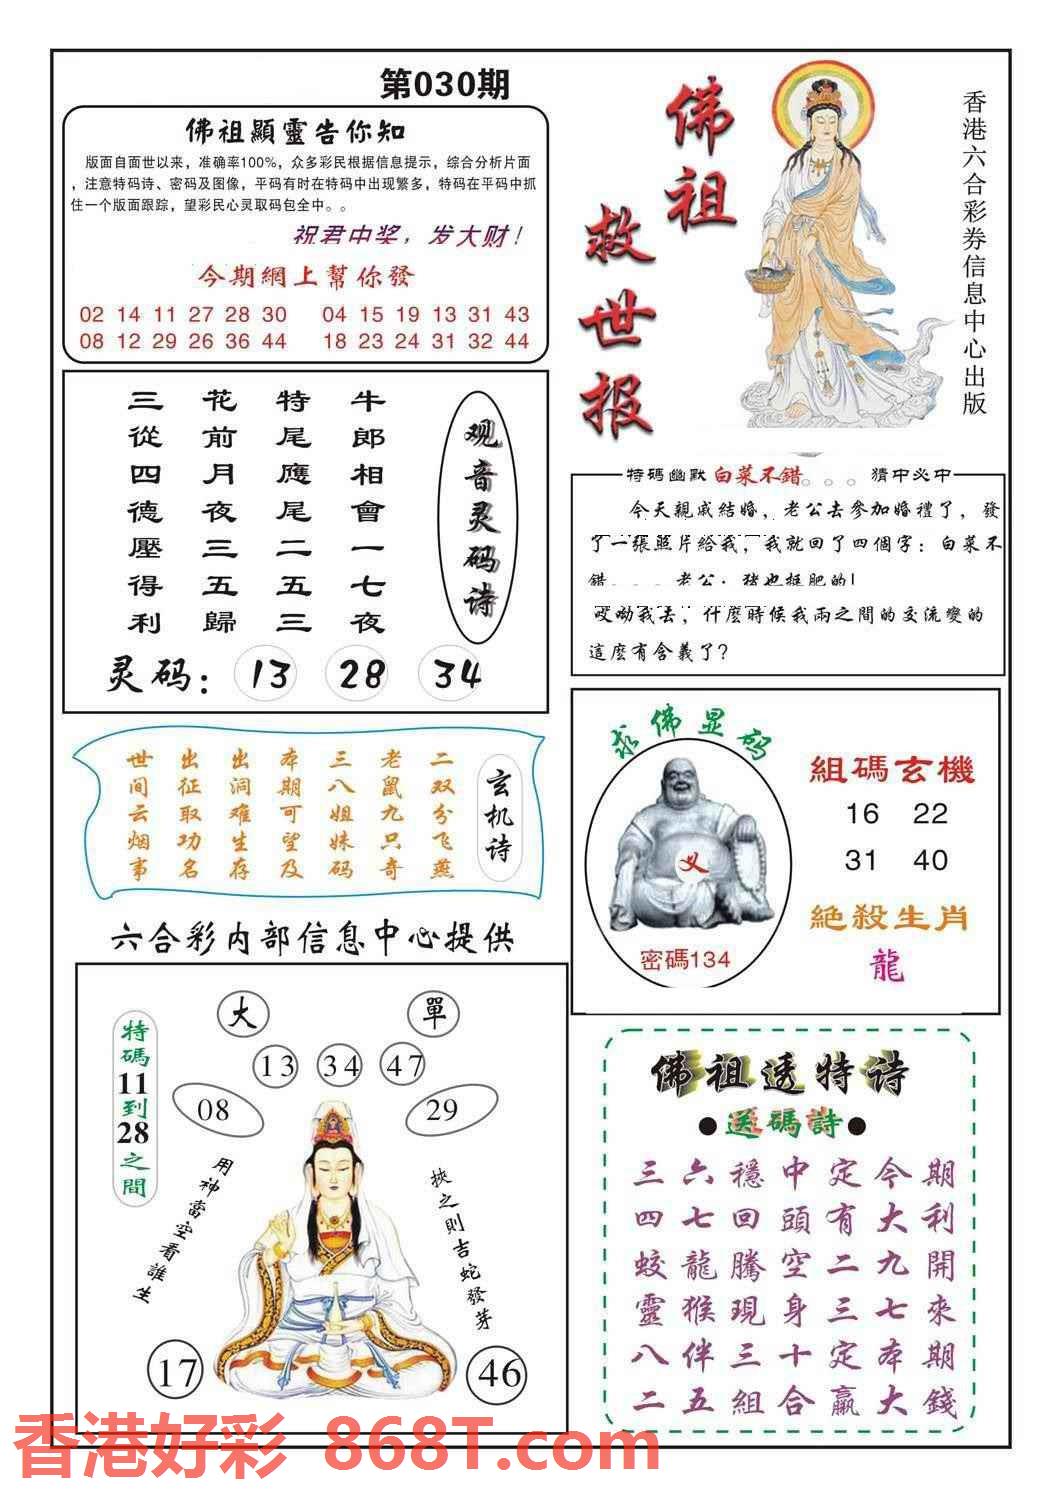 第030期
佛祖顯靈告你知
版面自面世以来，准确率100%，众多彩民根据信息提示，综合分析片面
，注意特码诗、密码及图像，平码有时在特码中出现繁多，特码在平码中抓
住一个版面跟踪，望彩民心灵取码包全中。。
祝君中奖，发大财！
今期網上幫你發
02 14 11 27 28 30 04 15 19 13 31 43
08 12 29 26 36 44 18 23 24 31 32 44
佛祖
救世报
香港六合彩券信息中心出版
观音灵码诗
牛郎相會一七夜
特尾應尾二五三
花前月夜三五歸
三從四德壓得利
灵码：13 28 34
特碼幽默 白菜不错。。。猜中必中
今天親戚結婚，老公去參加婚禮了，發
了一張照片給我，我就回了四個字：白菜不
错。。。老公：猪也挺肥的！
哎呦我去，什麼時候我兩之間的交流變的
這麽有含義了？
玄机诗
二双分飞燕
老鼠九只奇
三八姐妹码
本期可望及
出洞难生存
出征取功名
世间云烟事
求佛显码
义
密碼134
組碼玄機
16 22
31 40
絶殺生肖
龍
六合彩内部信息中心提供
特碼11到28之間
大 單
13 34 47
08 29
用神當空看誰生
挾之則吉蛇發芽
17 46
佛祖透特诗
●送碼詩●
三六穩中定今期
四七回頭有大利
蛟龍騰空二九開
靈猴現身三七來
八伴三十定本期
二五組合贏大錢
香港好彩 868T.com